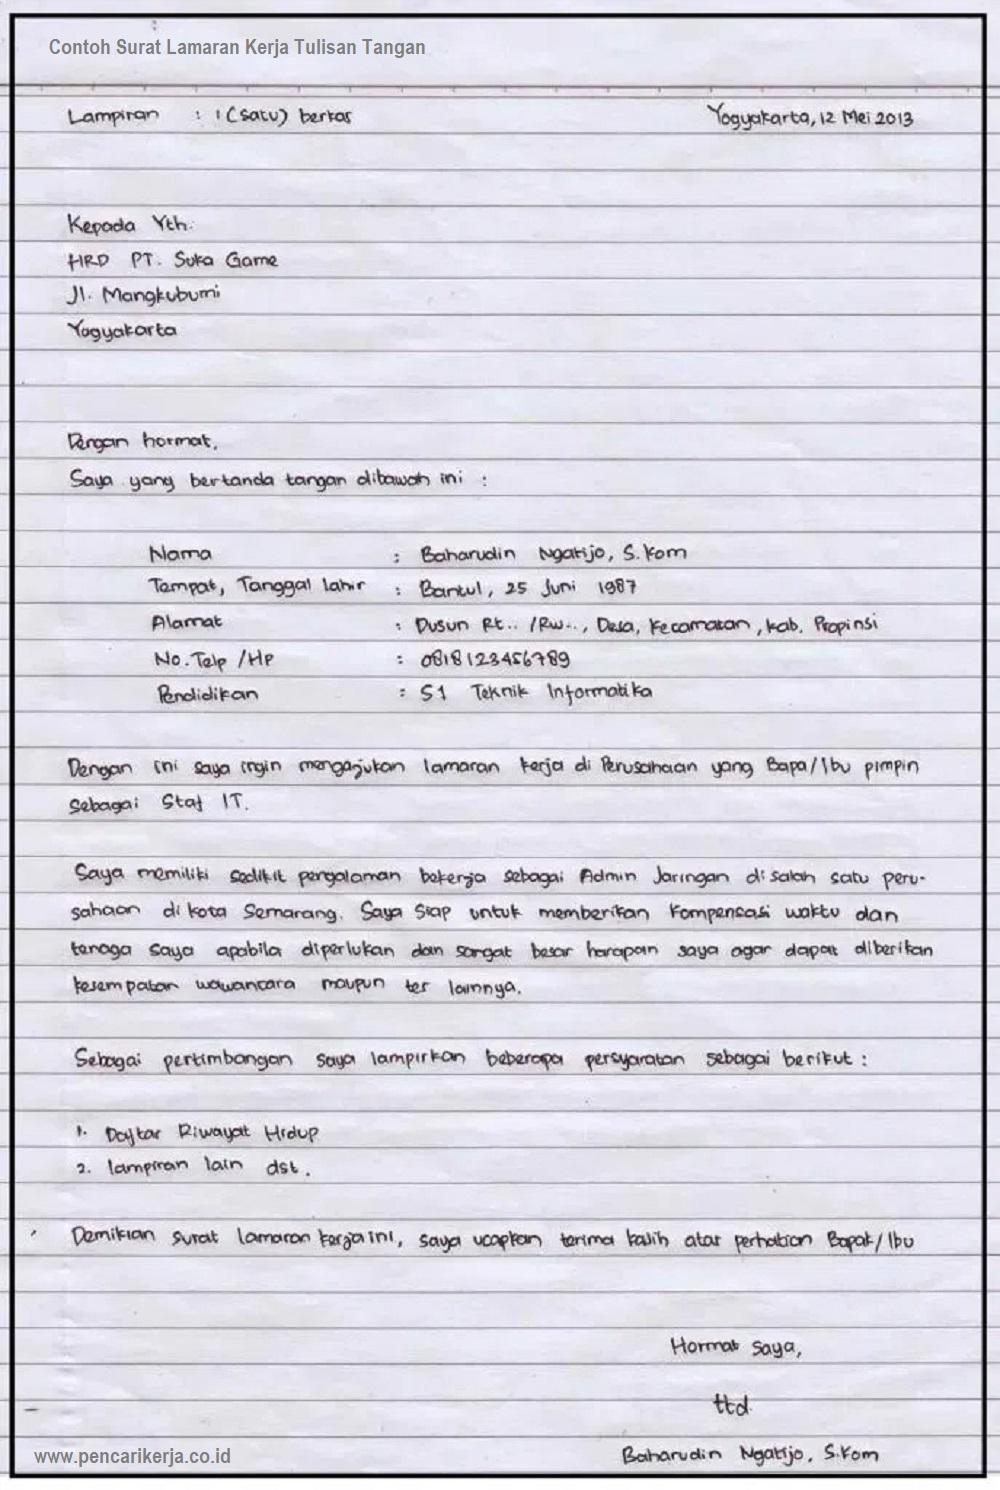 Contoh Surat Lamaran Kerja Tulisan Tangan
Lampiran : 1 (satu) berkas Yogyakarta, 12 Mei 2013
Kepada Yth.
HRD PT. Suka Game
Jl. Mangkubumi
Yogyakarta
Dengan hormat,
Saya yang bertanda tangan dibawah ini :
Nama : Baharudin Ngatijo, S.Kom
Tempat, Tanggal lahir : Bantul, 25 Juni 1987
Alamat : Dusun Rt.. /Rw.., Desa, Kecamatan, kab. Propinsi
No. Telp /Hp : 0818123456789
Pendidikan : S1 Teknik Informatika
Dengan ini saya ingin mengajukan lamaran kerja di Perusahaan yang Bapa/Ibu pimpin
sebagai Staf IT.
Saya memiliki sedikit pengalaman bekerja sebagai Admin Jaringan disalah satu peru-
sahaan di kota Semarang. Saya siap untuk memberikan kompensasi waktu dan
tenaga saya apabila diperlukan dan sangat besar harapan saya agar dapat diberikan
kesempatan wawancara maupun tes lainnya.
Sebagai pertimbangan saya lampirkan beberapa persyaratan sebagai berikut :
1. Daftar Riwayat Hidup
2. lampiran lain dst.
Demikian surat lamaran kerja ini, saya ucapkan terima kasih atas perhatian Bapak/Ibu
Hormat saya,
ttd.
Baharudin Ngatijo, S.Kom
www.pencarikerja.co.id